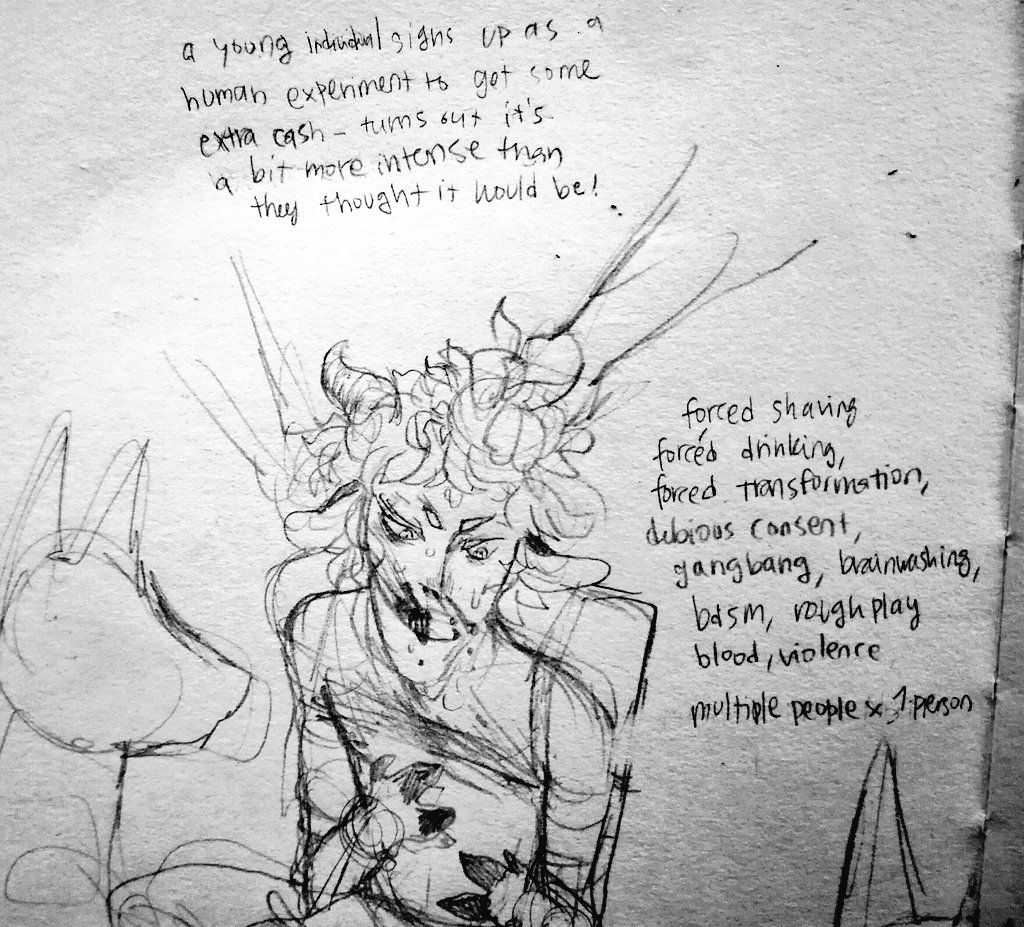 a young individual signs up as a
human experiment to get some
extra cash - turns out it's
a bit more intense than
they thought it would be!
forced shaving
forced drinking,
forced transformation,
dubious consent,
gangbang, brainwashing,
bdsm, rough play
blood, violence
multiple people x 1 person